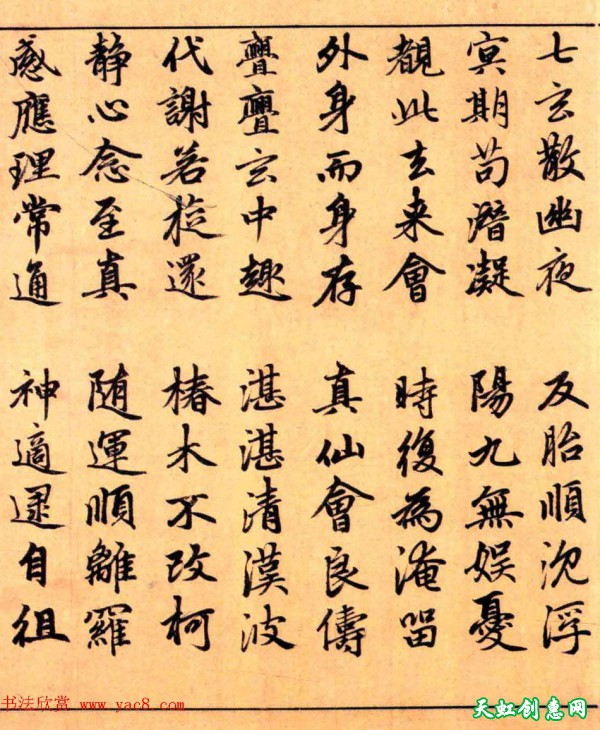 七玄散幽夜 反胎順沈浮
冥期苟潛凝 陽九無娱憂
覩此去来會 時復為淹留
外身而身存 真仙會良儔
亹亹玄中趣 湛湛清漢波
代謝若旋還 椿木不改柯
静心念至真 随運順離羅
感應理常通 神適逮自徂
书法欣赏 www.yac8.com
天虹创惠网